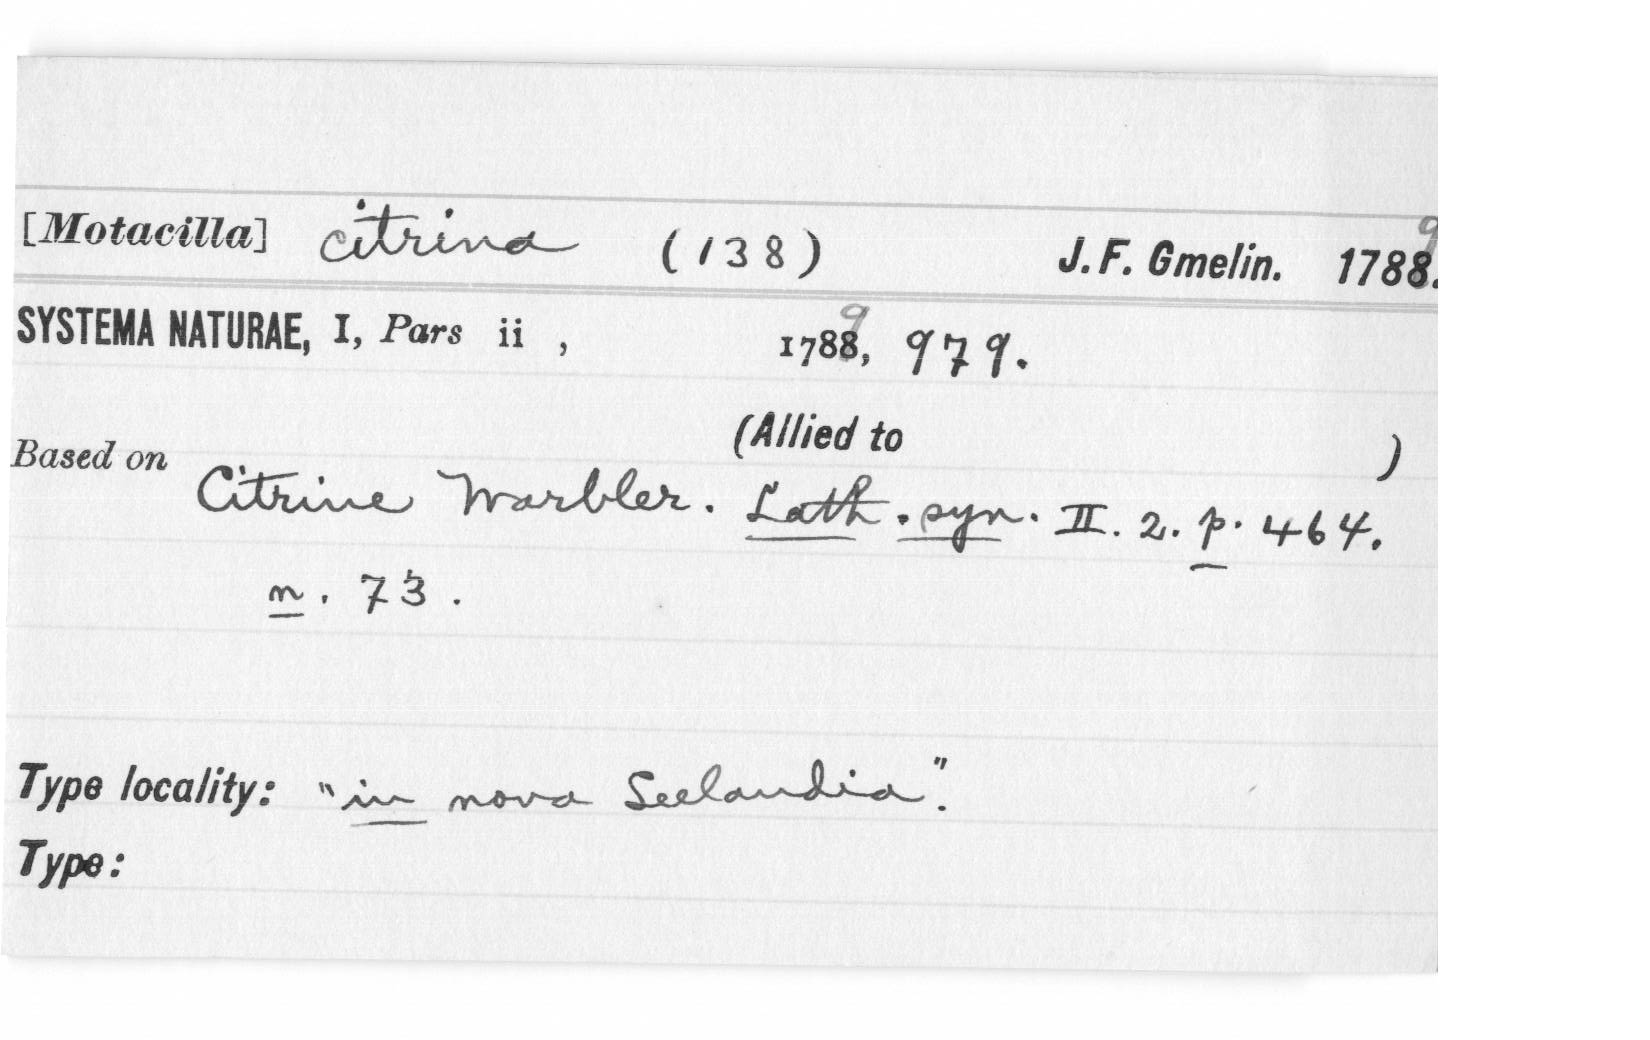 [Motacilla] citrina (138) J. F. Gmelin. 1788.9
SYSTEMA NATURAE, I, Pars ii , 1788,9 979.
(Allied to )
Based on Citrine Warbler. Lath. syn. II. 2. p. 464.
n. 73.
Type locality: "in nova Seelandia".
Type: